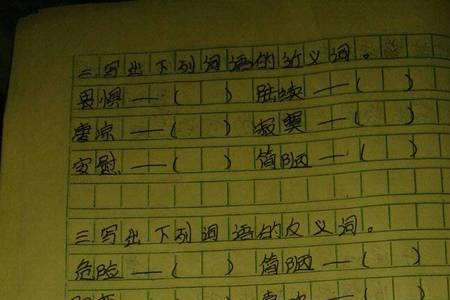 二写出下列词语的近义词。
畏惧—( ) 陆续—( )
凉—( ) 寂寞—( )
安慰—( ) 简陋—( )
三写出下列词语的反义词。
危险—( ) 简陋—( )